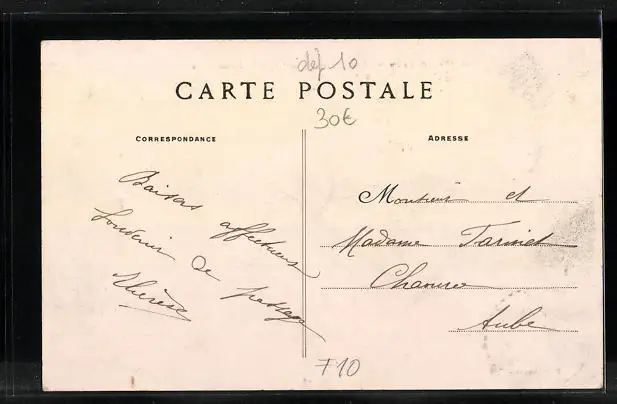 dép 10
CARTE POSTALE
30€
CORRESPONDANCE
ADRESSE
Baisers affectueux
de passage
Thérèse
Monsieur et
Madame
Chaource
Aube
F10